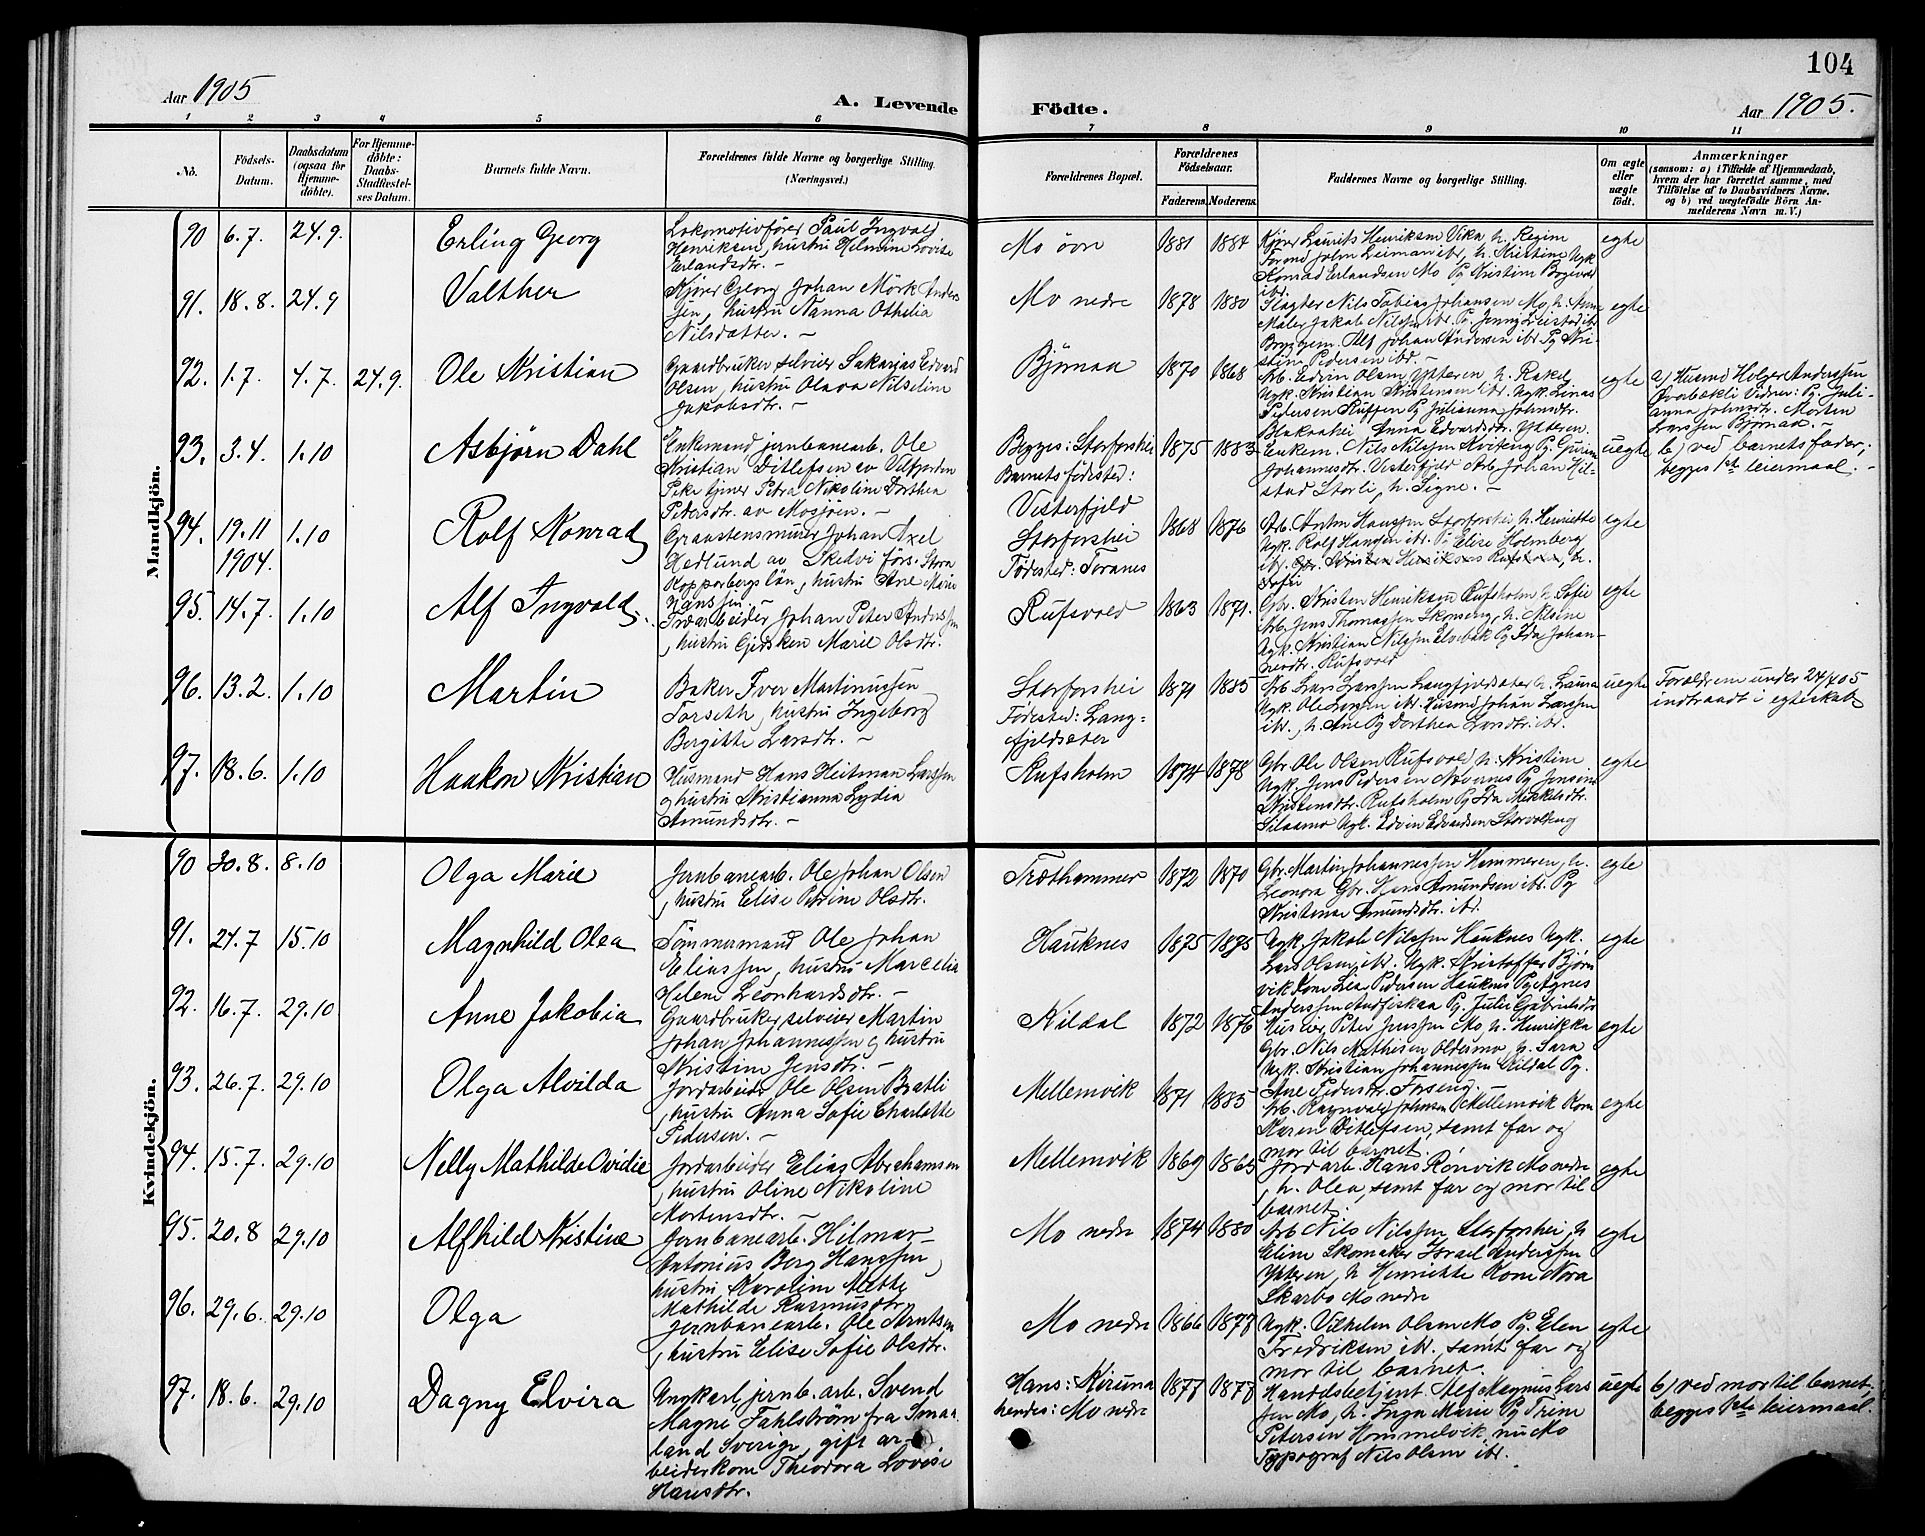 104
Aar 1905
A. Levende
Födte.
Aar 1905.
1 2 3 4 5 6 7 8 9 10 11
No.
Födsels-
Datum.
Daabsdatum
(ogsaa for
Hjemme-
döbte).
For Hjemme-
döbte:
Daabs-
Stadfæstel-
ses Datum.
Barnets fulde Navn.
Forældrenes fulde Navne og borgerlige Stilling.
(Næringsvei.)
Forældrenes Bopæl.
Forældrenes
Födselsaar.
Faderens. Moderens.
Faddernes Navne og borgerlige Stilling.
Om ægte
eller
uægte
födt.
Anmærkninger
(saasom: a) i Tilfælde af Hjemmedaab,
hvem der har forrettet samme, med
Tilföielse af to Daabsvidners Navne,
og b) ved uægtefödte Börn An-
melderens Navn m. V.)
Mandkjön.
90 6.7. 24.9. Erling Georg
Lokomotivförer Paul Ingvald
Henriksen, hustru Helmine Lovise
Erlandsdtr. –
Mo övre 1881 1884
Kjører Laurits Henriksen Vika h. Regine
Konrad Erlandsen Mo Pg Kristine
ibr.
egte
91. 18.8. 24.9 Valther
Kjører Georg Johan Mörk Anders
sen, hustru Nanna Othelia
Nilsdatter. –
Mo nedre 1878 1880
Slagter Nils Tobias Johansen Mo, h.
Maler Jakob Nilsen ibr. Pg. Jenny
Alf Johan Andersen ibr Pg Kri-
stine Pedersen ibr. –
egte
92. 1.7. 4.7. 24.9. Ole Kristian
Gaardbruker selveier Sakarias Edvard
Olsen, hustru Olava Nilseline
Jakobsdtr. –
Bjørnaa 1870 1868
Arb. Edvin Olsen Ytteren h. Rakel
Ugk. Kristian Kristensen ibr. Ugk. Linas
Pedersen Ruffen Pg Julianna Johnsdtr.
Blakaahei Anna Edvardsdtr. Ytteren.
egte
a) Husmd Holger Anderssen
Vidner: Pg. Juli-
anna Johnsdtr. Morten
Larssen Bjørnaa. –
93. 3.4. 1.10 Asbjörn Dahl
Enkemand jernbanearb. Ole
Kristian Ditlefsen av Velfjorden
Pike tjener Petra Nikoline Dorthea
Pedersdtr. av Mosjøen. –
Begges: Storforshei
Barnets fødested:
Visterfjeld
1875 1883
Enkem. Nils Nilssen Kviteng Pg. Gurine
Johannesdtr. Visterfjeld Arb. Johan Hil-
stad Storli, h. Signe. –
uegte
b) ved barnets fader;
begges 1ste leiermaal. –
94. 19.11 1904. 1.10 Rolf Konrad
Graastensmurer Johan Axel
Hedlund av Skedvi förs. Stora
Kopparbergs län, hustru Ane Marie
Hanssen –
Storforshei
Fødested: Toranes
1868 1876
Arb. Anton Hanssen Storforshei h. Henriette
Ugk. Rolf Hansen ibr. Pg Elise Holmberg
ibr. Gbr. Kristen Henriksen Rufsholm, h.
Sofie
egte
95. 14.7. 1.10 Alf Ingvald.
Jordarbeider Johan Peter Anderssen
, hustru Gidsken Marie Olsdtr.
Rufsvold 1863 1871.
Gbr. Kristen Henriksen Rufsholm h. Sofie
Arb. Jens Thomassen Skonseng, h. Alvine
Ugk. Kristian Nilssen Elvebak Pg Ida Johan-
nesdtr. Rufsvold
egte
96. 13.2. 1.10 Martin
Baker Iver Martinussen
Forseth, hustru Ingeborg
Bergitte Larsdtr. –
Storforshei
Fødested: Lang-
fjeldsæter
1871 1885
Arb. Lars Larssen Langfjeldsæter h. Laura
Ugk. Ole Larsen ibr. Husmd Johan Larssen
ibr, h. Ane Pg Dorthea Larsdtr. ibr.
uegte
Forældrene under 24/4 05
indtraadt i egteskab
97. 18.6. 1.10 Haakon Kristian
Husmand Hans Heitman Larssen
og hustru Kristianna Lydia
Amundsdtr. –
Rufsholm 1874 1878
Gbr Ole Olsen Rufsvold h. Kristine
Ugk. Jens Pedersen Nævernes Pg Jensine
Kristensdtr. Rufsholm Pg Ida Mikkelsdtr.
Silaamo Ugk. Edvin Edvardsen Storvolleng
egte
Kvindekjön.
90 30.8. 8.10 Olga Marie
Jernbanearb. Ole Johan Olsen
, hustru Elise Petrine Olsdtr.
Træthammer 1872 1870
Gbr. Martin Johannessen Hammeren, h.
Leonora Gbr. Hans Amundsen ibr. Pg
Kristense Amundsdtr. ibr.
egte
91. 24.7 15.10 Magnhild Olea
Tömmermand Ole Johan
Eliassen, hustru Marcelia
Helene Leonhardsdtr. –
Hauknes 1875 1875
Ugk. Jakob Nilssen Hauknes Ugk.
Lars Olsen ibr. Ugk. Kristoffer Bjørn
vik Kone Lea Pedersen Hauknes Pg Agnes
Anderssen Andfiskaa Pg. Julie Gabrielsdtr
egte
92. 16.7. 29.10 Anne Jakobia
Gaardbruker selveier Martin
Johan Johannessen og hustru
Kristine Jensdtr. –
Kildal 1872 1876
Huseier Peter Jenssen Mo h. Henrikka
Gbr. Nils Mathisen Oldermo h. Sara
Ugk. Kristian Johannessen Kildal Pg.
Ane Pedersdtr. Forseng. –
egte
93. 26.7. 29.10 Olga Alvilda
Jordarbeider Ole Olsen Bratli
, hustru Anna Sofie Charlotte
Pedersen. –
Mellemvik 1871 1885
Arb. Ragnvald Johansen Mellemvik Kone
Maren Ditlefsen, samt far og
mor til barnet.
egte
94. 15.7. 29.10 Nelly Mathilde Ovidie
Jordarbeider Elias Abrahamsen
, hustru Oline Nikoline
Mortensdtr. –
Mellemvik 1869 1865
Jordarb. Hans Rønvik Mo nedre
, h. Olea, samt far og mor til
barnet.
egte
95. 20.8 29.10 Alfhild Kristine
Jernbanearb. Hilmar
Antonius Berg Hanssen,
hustru Karoline Mette
Mathilde Rasmusdtr.
Mo nedre 1874 1880
Arb Nils Nilssen Storforshei, h
Eline Skomaker Israel Anderssen
Ytteren, h Henrikke Kone Nora
Skarbo Mo nedre
egte
96. 29.6. 29.10 Olga
Jernbanearb. Ole Arntsen
, hustru Elise Sofie Olsdtr.
Mo nedre 1866 1877
Ugk. Vilhelm Olsen Mo Pg. Elen
Fredriksen ibr., samt far og
mor til barnet.
egte
97. 18.6. 29.10 Dagny Elvira
Ungkarl jernb. arb. Svend
Magne Fahlstrøm fra Smaa-
land Sverige, gift ar-
beiderkone Theodora Lovise
Hansdtr.
Hans: Kiruna
hendes: Mo nedre
1877 1877
Handdsbetjent Alf Magnus Lars
sen Mo, h. Inga Marie Pg Trine
Petersen Hommelvik, nu Mo
Typograf Nils Olsen ibr.
uegte
b) ved mor til barnet,
begges 1ste leiermaal.